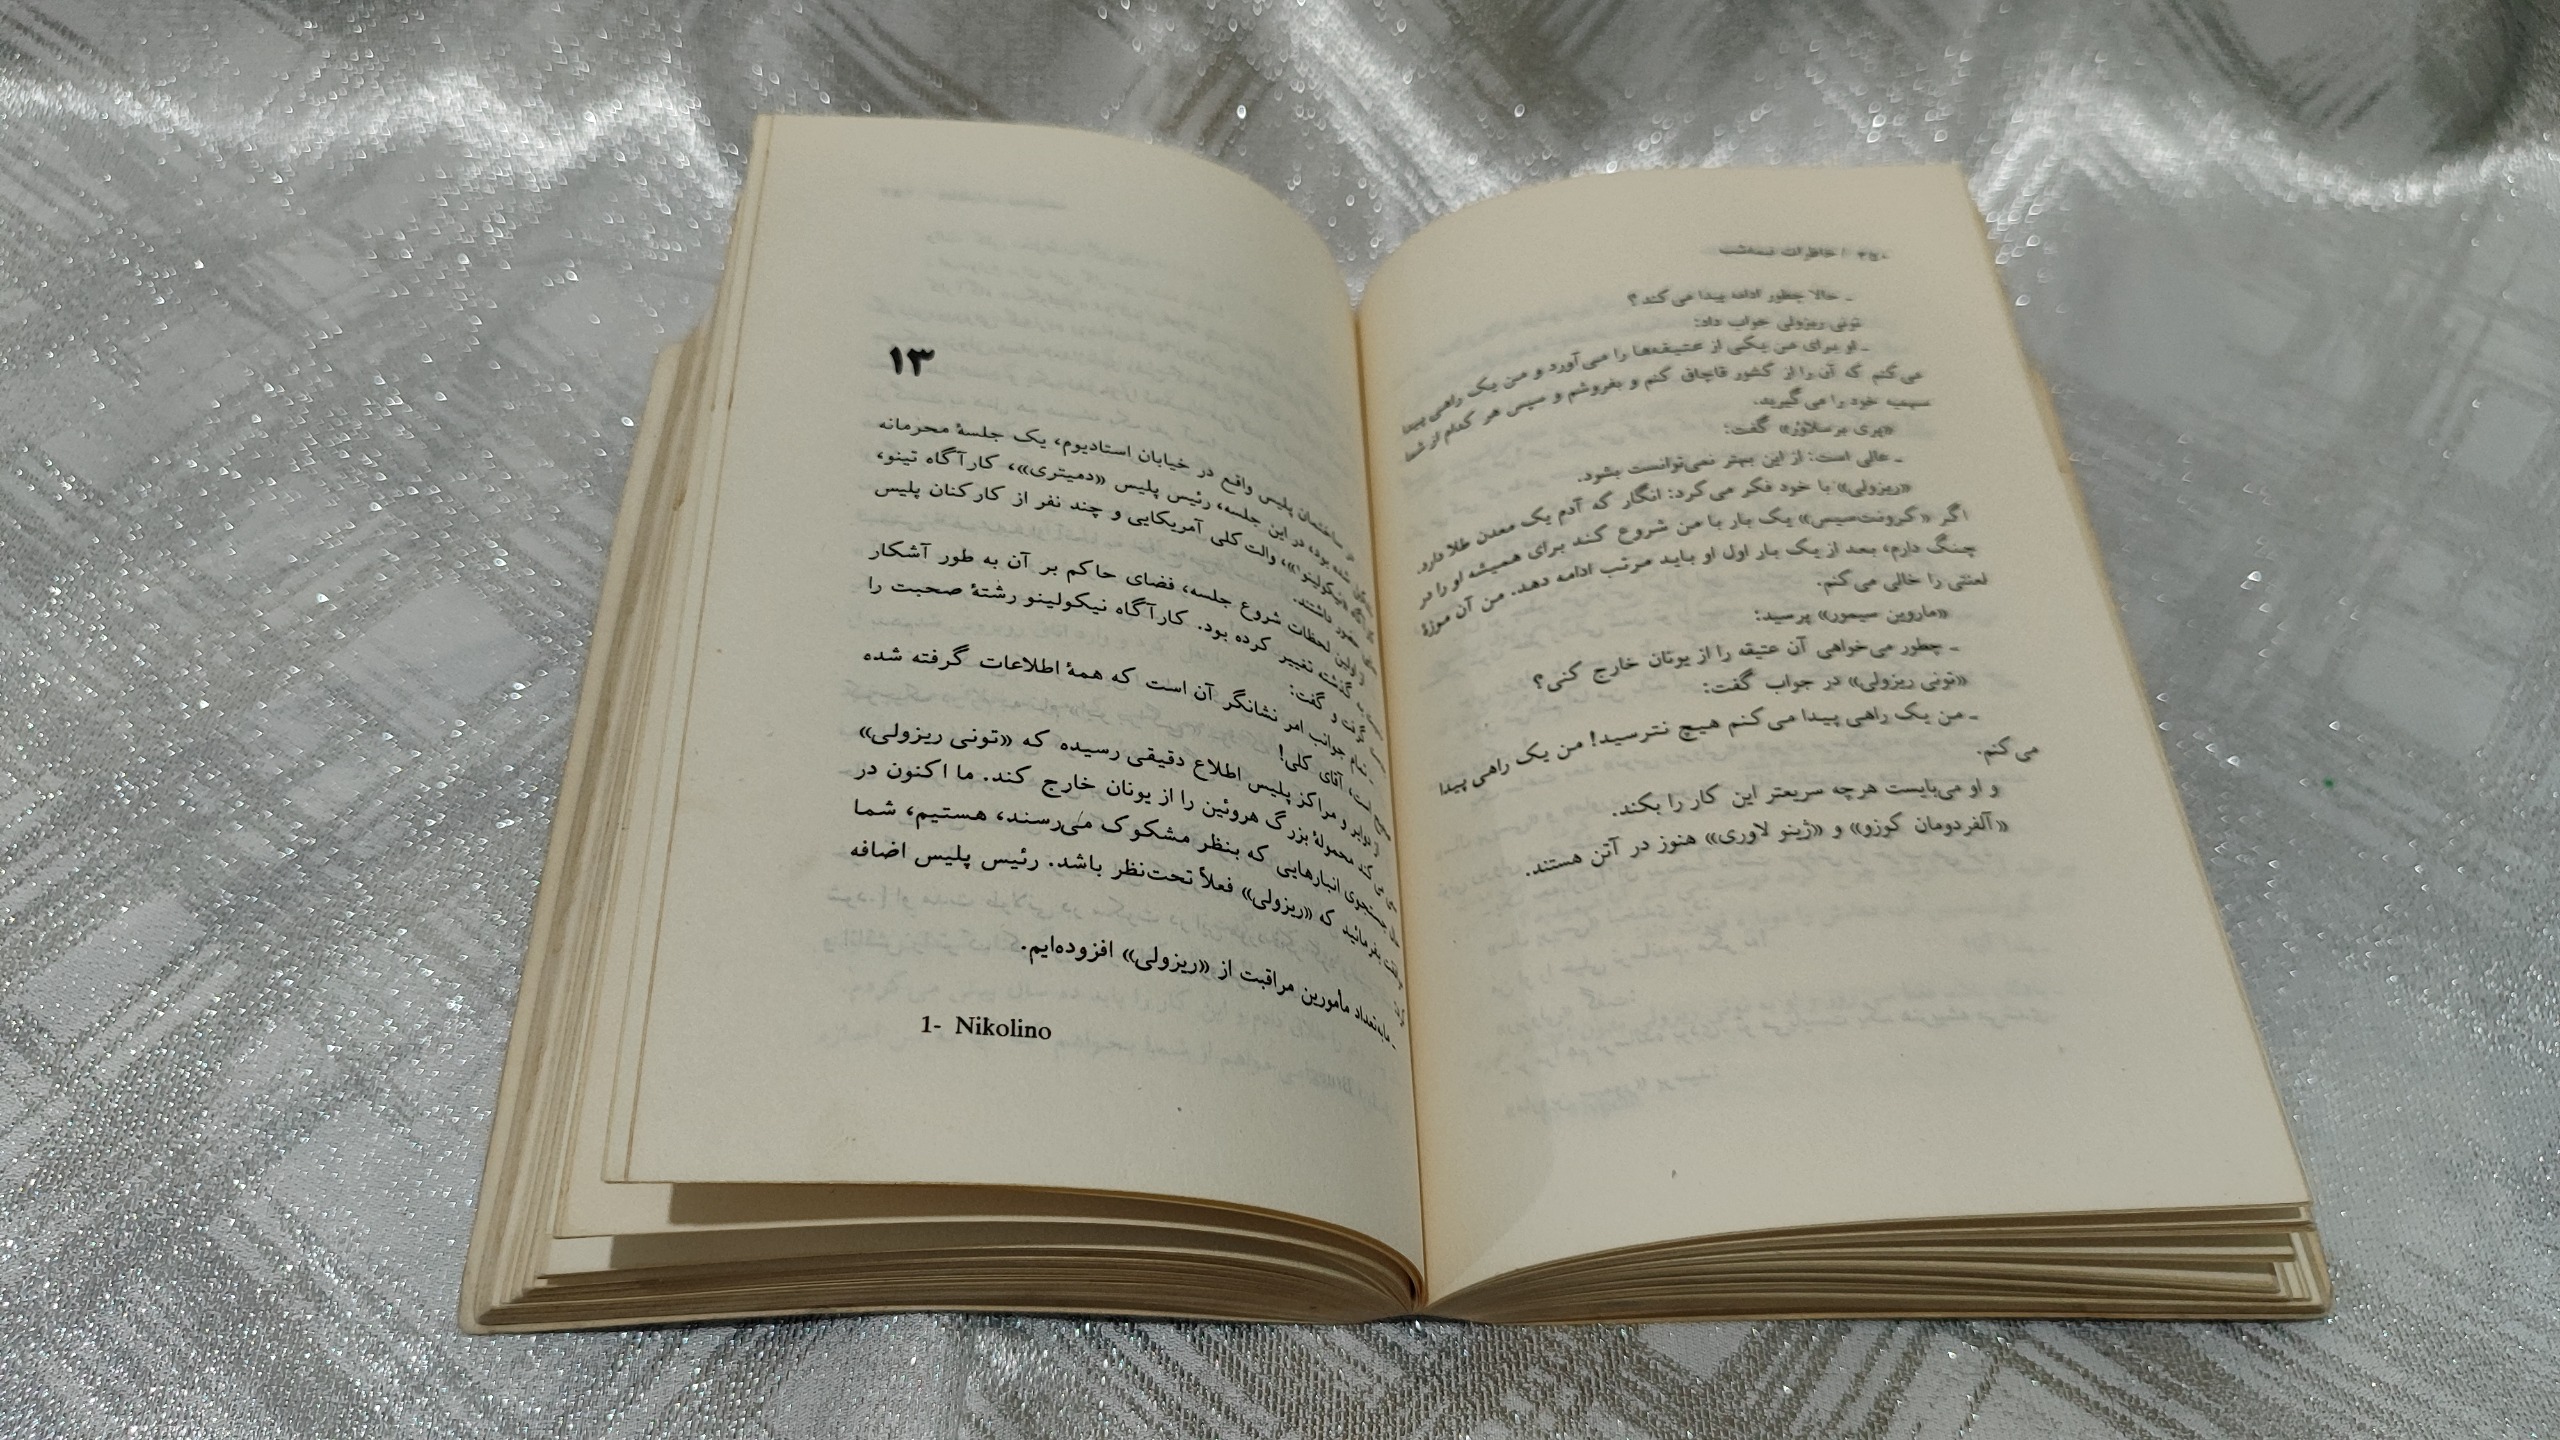 خاطرات نیمه‌شب
ـ حالا چطور ادامه پیدا می‌کند؟
تونی ریزولی جواب داد:
ـ او برای من یکی از عتیقه‌ها را می‌آورد و من یک راهی پیدا
می‌کنم که آن را از کشور قاچاق کنم و بفروشم و سپس هر کدام از شما
سهمیه خود را می‌گیرید.
«پری برسلاور» گفت:
ـ عالی است: از این بهتر نمی‌توانست بشود.
«ریزولی» با خود فکر می‌کرد: انگار که آدم یک معدن طلا دارد.
اگر «کرونت‌سیس» یک بار با من شروع کند برای همیشه او را در
چنگ دارم، بعد از یک بار اول او باید مرتب ادامه دهد. من آن موزهٔ
لعنتی را خالی می‌کنم.
«ماروین سیمور» پرسید:
ـ چطور می‌خواهی آن عتیقه را از یونان خارج کنی؟
«تونی ریزولی» در جواب گفت:
ـ من یک راهی پیدا می‌کنم هیچ نترسید! من یک راهی پیدا
می‌کنم.
و او می‌بایست هرچه سریعتر این کار را بکند.
«آلفردومان کوزو» و «ژینو لاوری» هنوز در آتن هستند.
۱۳
در ساختمان پلیس واقع در خیابان استادیوم، یک جلسهٔ محرمانه
شده بود، در این جلسه، رئیس پلیس «دمیتری»، کارآگاه تینو،
«نیکولینو۱»، والت کلی آمریکایی و چند نفر از کارکنان پلیس
حضور داشتند.
از اولین لحظات شروع جلسه، فضای حاکم بر آن به طور آشکار
گذشته تغییر کرده بود. کارآگاه نیکولینو رشتهٔ صحبت را
گرفت و گفت:
ـ تمام جوانب امر نشانگر آن است که همهٔ اطلاعات گرفته شده
است، آقای کلی!
از دوایر و مراکز پلیس اطلاع دقیقی رسیده که «تونی ریزولی»
می‌کند محمولهٔ بزرگ هروئین را از یونان خارج کند. ما اکنون در
حال جستجوی انبارهایی که بنظر مشکوک می‌رسند، هستیم، شما
بفرمائید که «ریزولی» فعلاً تحت‌نظر باشد. رئیس پلیس اضافه
ـ ما به‌تعداد مأمورین مراقبت از «ریزولی» افزوده‌ایم.
1- Nikolino